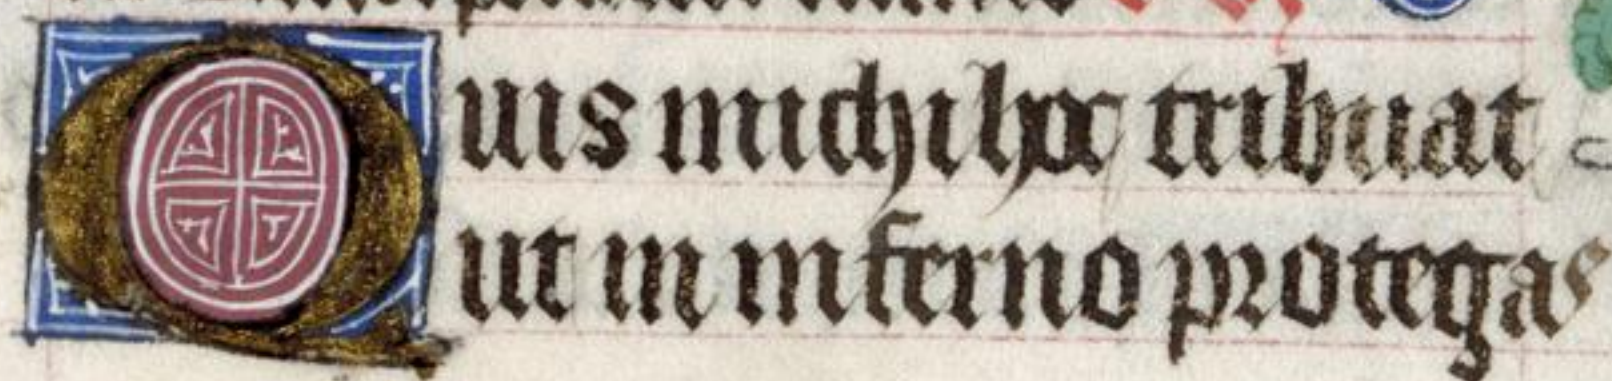 Quis michi hoc tribuat
ut in inferno protegas